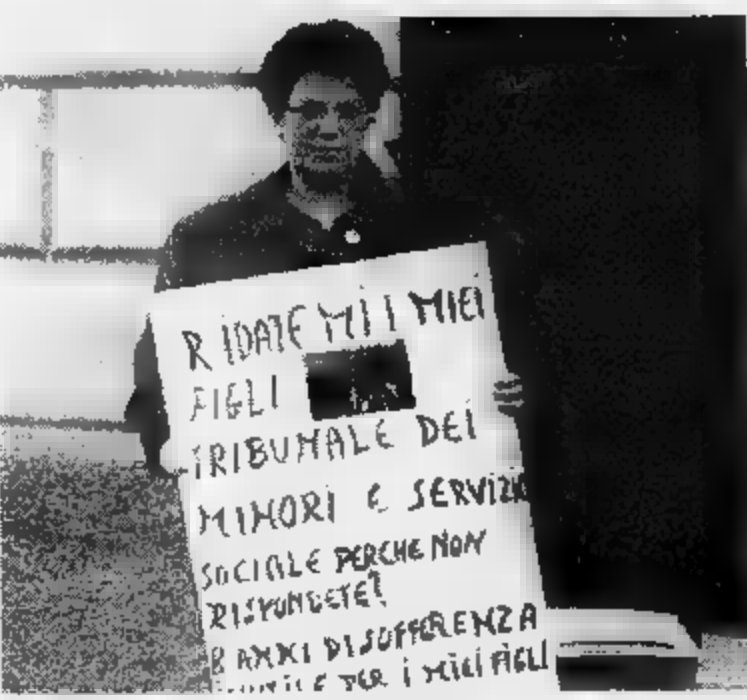 RIDATEMI I MIEI
FIGLI
TRIBUNALE DEI
MINORI E SERVIZIO
SOCIALE PERCHE NON
RISPONDETE?
8 ANNI DI SOFFERENZA
PER I MIEI FIGLI